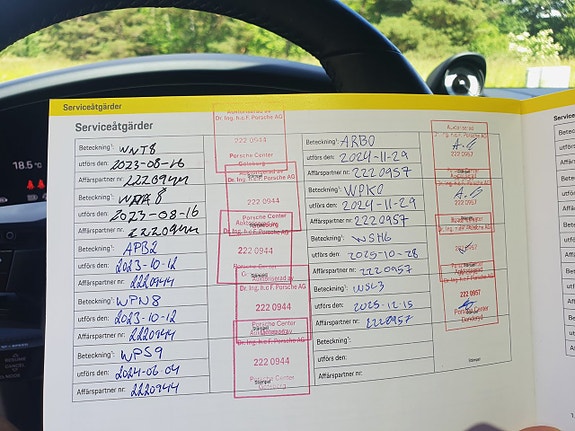 Serviceåtgärder
Serviceåtgärder
Beteckning: WNT8
utförs den: 2023-08-16
Affärspartner nr: 2220944
Beteckning:
utförs den: 2023-08-16
Affärspartner nr: 2220944
Beteckning: APB2
utförs den: 2023-10-12
Affärspartner nr: 2220944
Beteckning: WPN8
utförs den: 2023-10-12
Affärspartner nr: 2220944
Beteckning: WPS9
utförs den: 2024-06-04
Affärspartner nr: 2220944
Auktoriserad av
Dr. Ing. h.c.F. Porsche AG
222 0944
Porsche Center
Goteborg
Dr. Ing. h.c.F. Porsche AG
222 0944
Auktoriserad av
222 0944
Dr. Ing. h.c.F. Porsche AG
222 0944
Porsche Center
Dr. Ing. h.c.F. Porsche AG
222 0944
Stämpel
Porsche Center
Goteborg
Beteckning: ARB0
utförs den: 2024-11-29
Affärspartner nr: 2220957
Beteckning: WPK0
utförs den: 2024-11-29
Affärspartner nr: 2220957
Beteckning: WSH6
utförs den: 2025-10-28
Affärspartner nr: 2220957
Beteckning: WSL3
utförs den: 2025-12-15
Affärspartner nr: 2220957
Beteckning:
utförs den:
Affärspartner nr:
Auktoriserad av
Dr. Ing. h.c.F. Porsche AG
222 0957
222 0957
222 0957
222 0957
Porsche Center
Danderyd
Stämpel
18.5°C